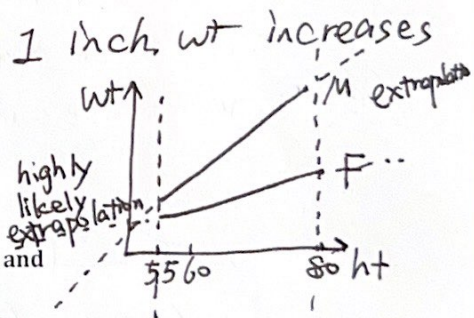 1 inch, wt increases
wt
M extrapolatio
highly
likely
extrapolation
F
and
55 60 80 ht